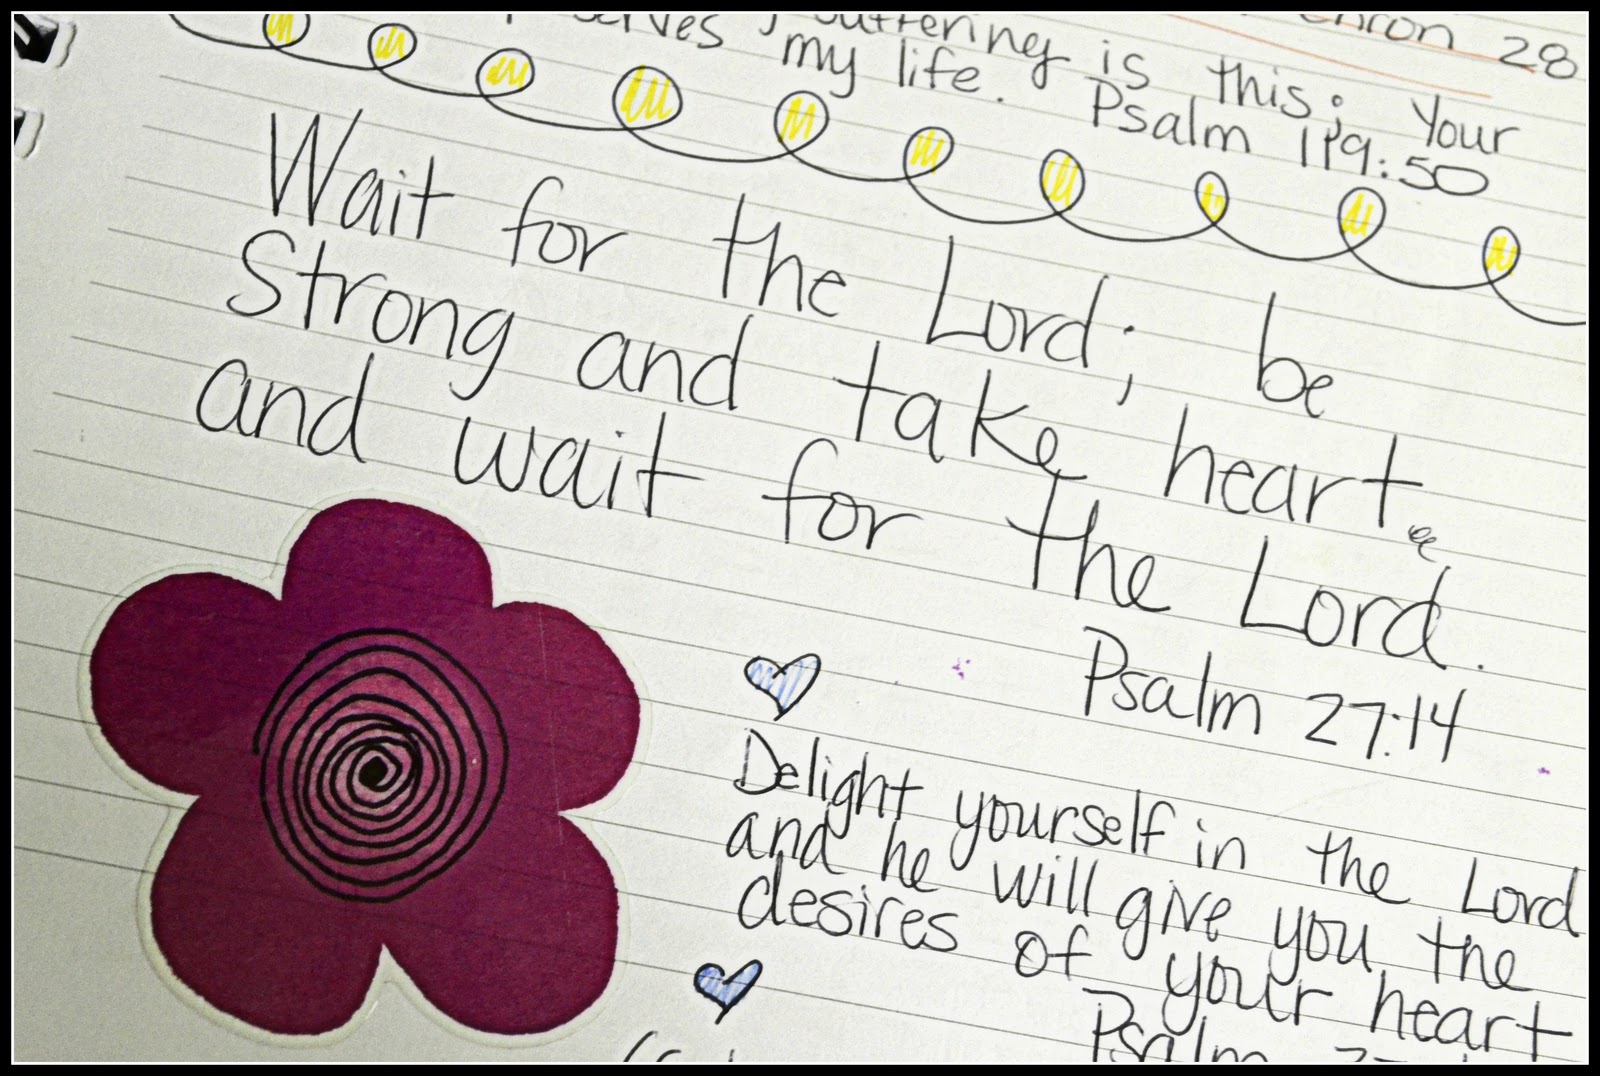 Chron 28
suffering is this: Your
my life.
Psalm 119:50
Wait for the Lord; be
Strong and take heart
and wait for the Lord.
Psalm 27:14
Delight yourself in the Lord
and he will give you the
desires of your heart
Psalm